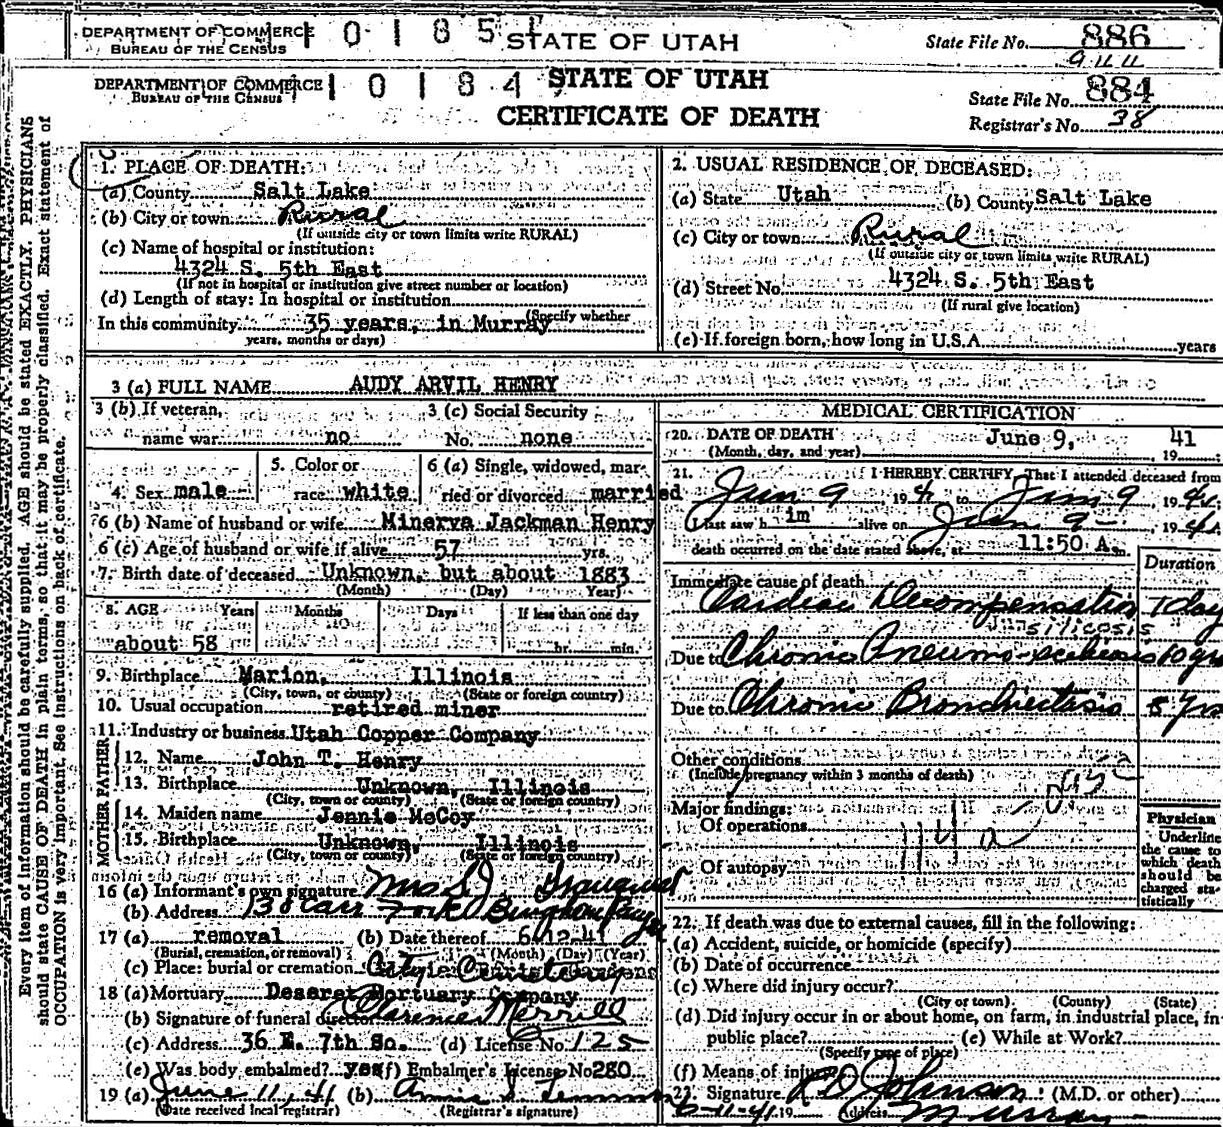 DEPARTMENT OF COMMERCE
BUREAU OF THE CENSUS
1 0 1 8 5
STATE OF UTAH
State File No. 886
DEPARTMENT OF COMMERCE
BUREAU OF THE CENSUS
1 0 1 8 4
STATE OF UTAH
CERTIFICATE OF DEATH
State File No. 884
Registrar's No. 38
Every item of information should be carefully supplied. AGE should be stated EXACTLY. PHYSICIANS
should state CAUSE OF DEATH in plain terms, so that it may be properly classified. Exact statement of
OCCUPATION is very important. See instructions on back of certificate.
1. PLACE OF DEATH:
(a) County Salt Lake
(b) City or town Rural
(If outside city or town limits write RURAL)
(c) Name of hospital or institution:
4324 S. 5th East
(If not in hospital or institution give street number or location)
(d) Length of stay: In hospital or institution
(Specify whether
In this community 35 years, in Murray
years, months or days)
2. USUAL RESIDENCE OF DECEASED:
(a) State Utah (b) County Salt Lake
(c) City or town Rural
(If outside city or town limits write RURAL)
(d) Street No. 4324 S. 5th East
(If rural give location)
(e) If foreign born, how long in U.S.A. years
3 (a) FULL NAME AUDY ARVIL HENRY
3 (b) If veteran,
name war no
3 (c) Social Security
No. none
4. Sex male
5. Color or
race white
6 (a) Single, widowed, mar-
ried or divorced married
6 (b) Name of husband or wife Minerva Jackman Henry
6 (c) Age of husband or wife if alive 57 yrs.
7. Birth date of deceased Unknown, but about 1883
(Month) (Day) Year)
8. AGE Years Months Days If less than one day
about 58 hr. min.
9. Birthplace Marion, Illinois
(City, town, or county) (State or foreign country)
10. Usual occupation retired miner
11. Industry or business Utah Copper Company
FATHER
12. Name John T. Henry
13. Birthplace Unknown, Illinois
(City, town or county) (State or foreign country)
MOTHER
14. Maiden name Jennie McCoy
15. Birthplace Unknown, Illinois
(City, town or county) (State or foreign country)
16 (a) Informant's own signature Mrs S J
(b) Address 138 Carr Fork Bingham
17 (a) removal (b) Date thereof 6-12-41
(Burial, cremation, or removal) (Month) (Day) (Year)
(c) Place: burial or cremation City Cemetery
18 (a) Mortuary Deseret Mortuary Company
(b) Signature of funeral director Clarence Merrill
(c) Address 36 E. 7th So. (d) License No. 125
(e) Was body embalmed? yes (f) Embalmer's License No 280
19 (a) June 11, 41 (b) Annie S
(Date received local registrar) (Registrar's signature)
MEDICAL CERTIFICATION
20. DATE OF DEATH June 9, 19 41
(Month, day, and year)
21. I HEREBY CERTIFY That I attended deceased from
Jun 9 1941 to Jun 9, 1941
I last saw h im alive on Jun 9- 1941
death occurred on the date stated above, at 11:50 A m.
Duration
Immediate cause of death
Cardiac Decompensation 1 day
silicosis
Due to Chronic Pneumo-sclerosis 10 yrs
Due to Chronic Bronchiectasis 5 yrs
Other conditions
(Include pregnancy within 3 months of death)
Major findings:
Of operations
114a
Of autopsy
Physician
Underline
the cause to
which death
should be
charged sta-
tistically
22. If death was due to external causes, fill in the following:
(a) Accident, suicide, or homicide (specify)
(b) Date of occurrence
(c) Where did injury occur?
(City or town) (County) (State)
(d) Did injury occur in or about home, on farm, in industrial place, in
public place? (e) While at Work?
(Specify type of place)
(f) Means of injury
23. Signature Johnson (M.D. or other)
6-11-41 19 Address Murray